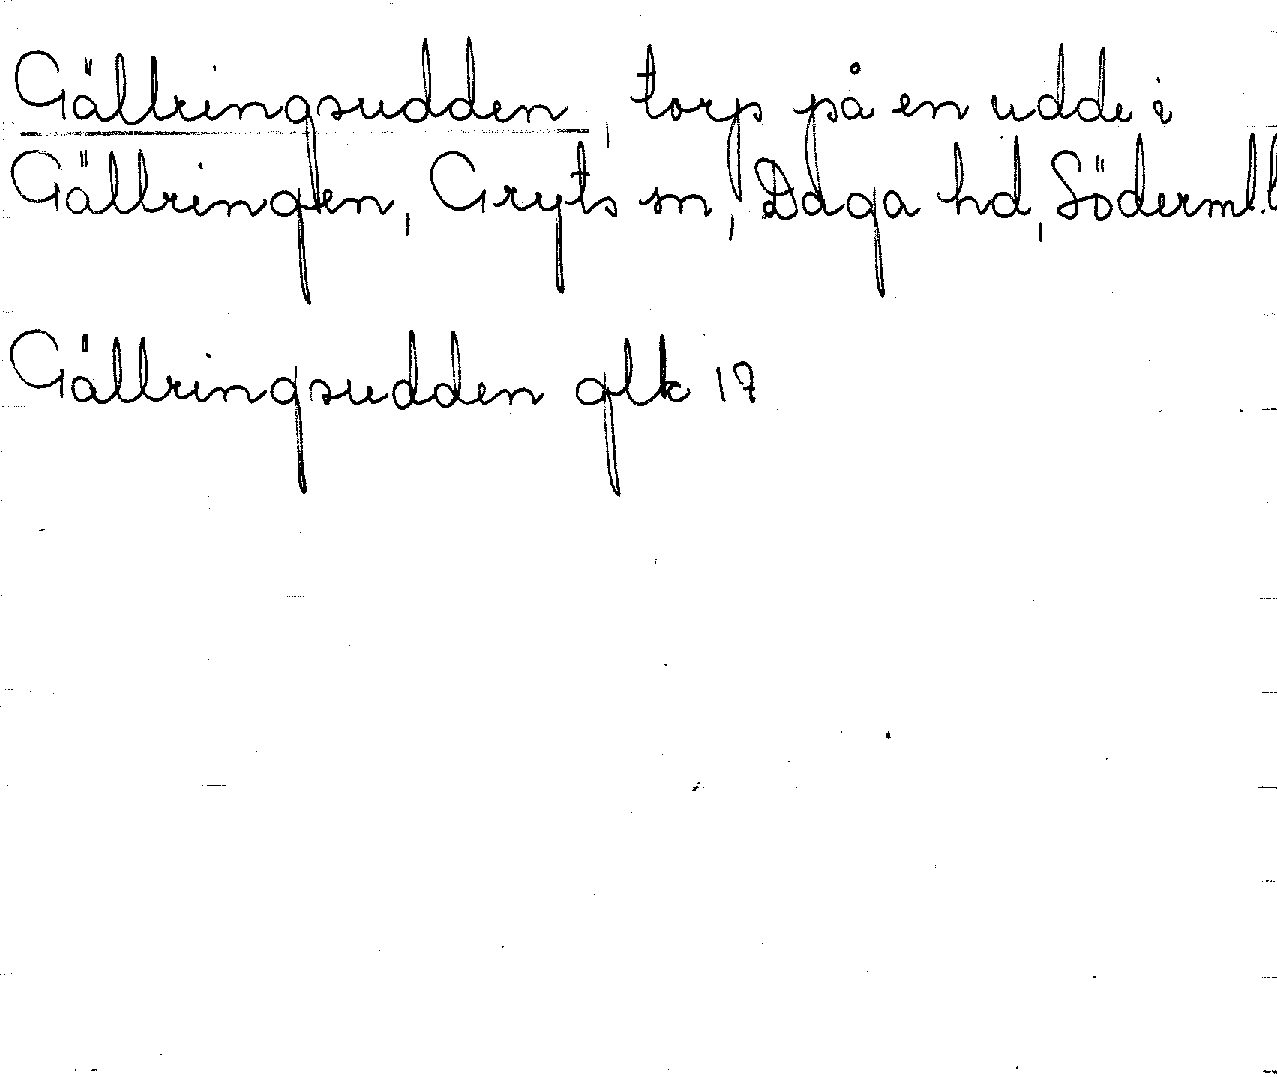 Gällringsudden, torp på en udde i
Gällringen, Gryts sn, Daga hd, Söderml.l
Gällringsudden glk 17